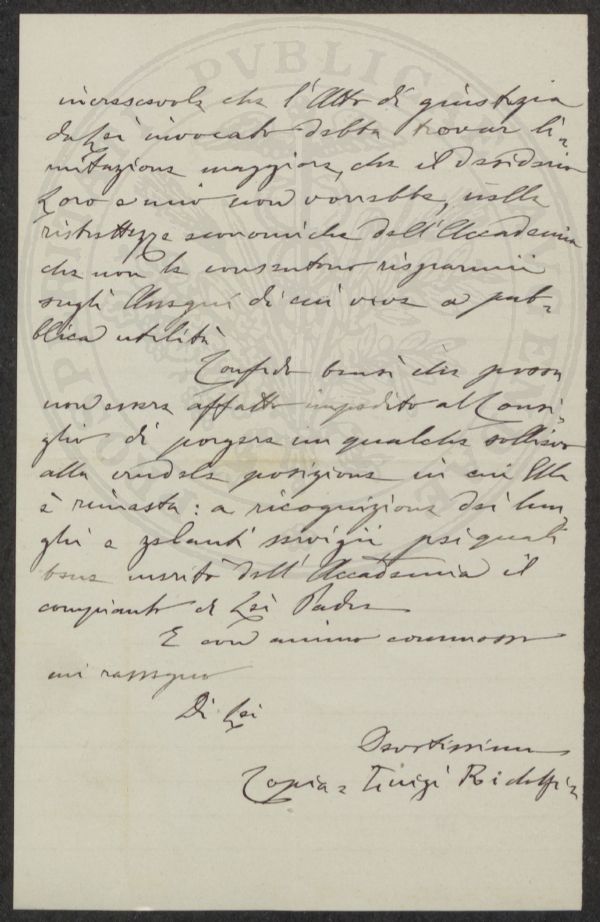 increscevole che l'Atto di giustizia
da Lei invocato debba trovar li=
mitazione maggiore, che il desiderio
Loro e mio non vorrebbe, nelle
ristrettezze economiche dell'Accademia
che non le consentono risparmii
sugli Assegni di cui vive a pub=
blica utilità
Confido bensì che possa
non essere affatto impedito al Consi,
glio di porgere un qualche sollievo
alla crudele posizione in cui Ella
è rimasta: a ricognizione dei lun
ghi e zelanti servigii pei quali
bene meritò dell'Accademia il
compianto di Lei Padre
E con animo commosso
mi rassegno
Di Lei
Devotissimo
Copia = Luigi Ridolfi =